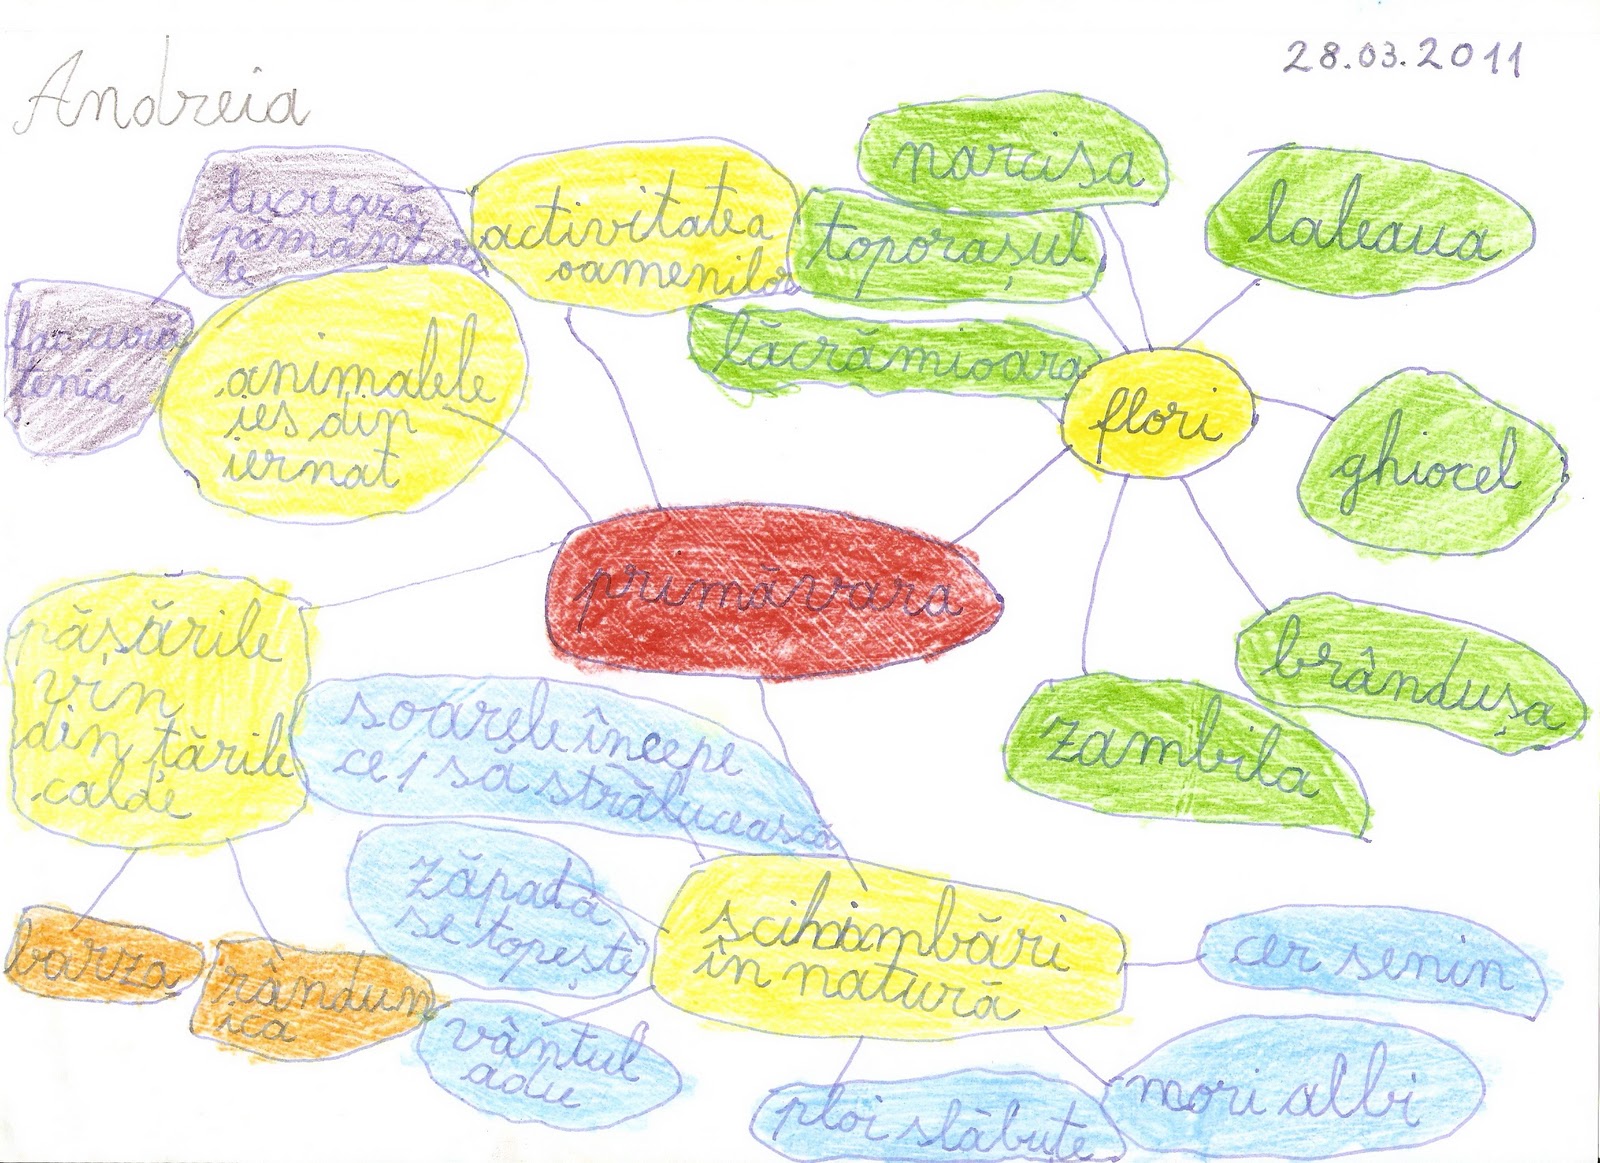 Andreia
28.03.2011
narcisa
laleaua
toporașul
lăcrămioara
flori
ghiocel
brândușa
zambila
activitatea
oamenilor
lucrează
pamanturi
le
fac cură
tenia
animalele
ies din
iernat
primăvara
păsările
vin
din țările
calde
barza
rândun
ica
soarele începe
să strălucească
zăpada
se topește
vântul
adie
schimbări
în natură
cer senin
nori albi
ploi slăbuțe